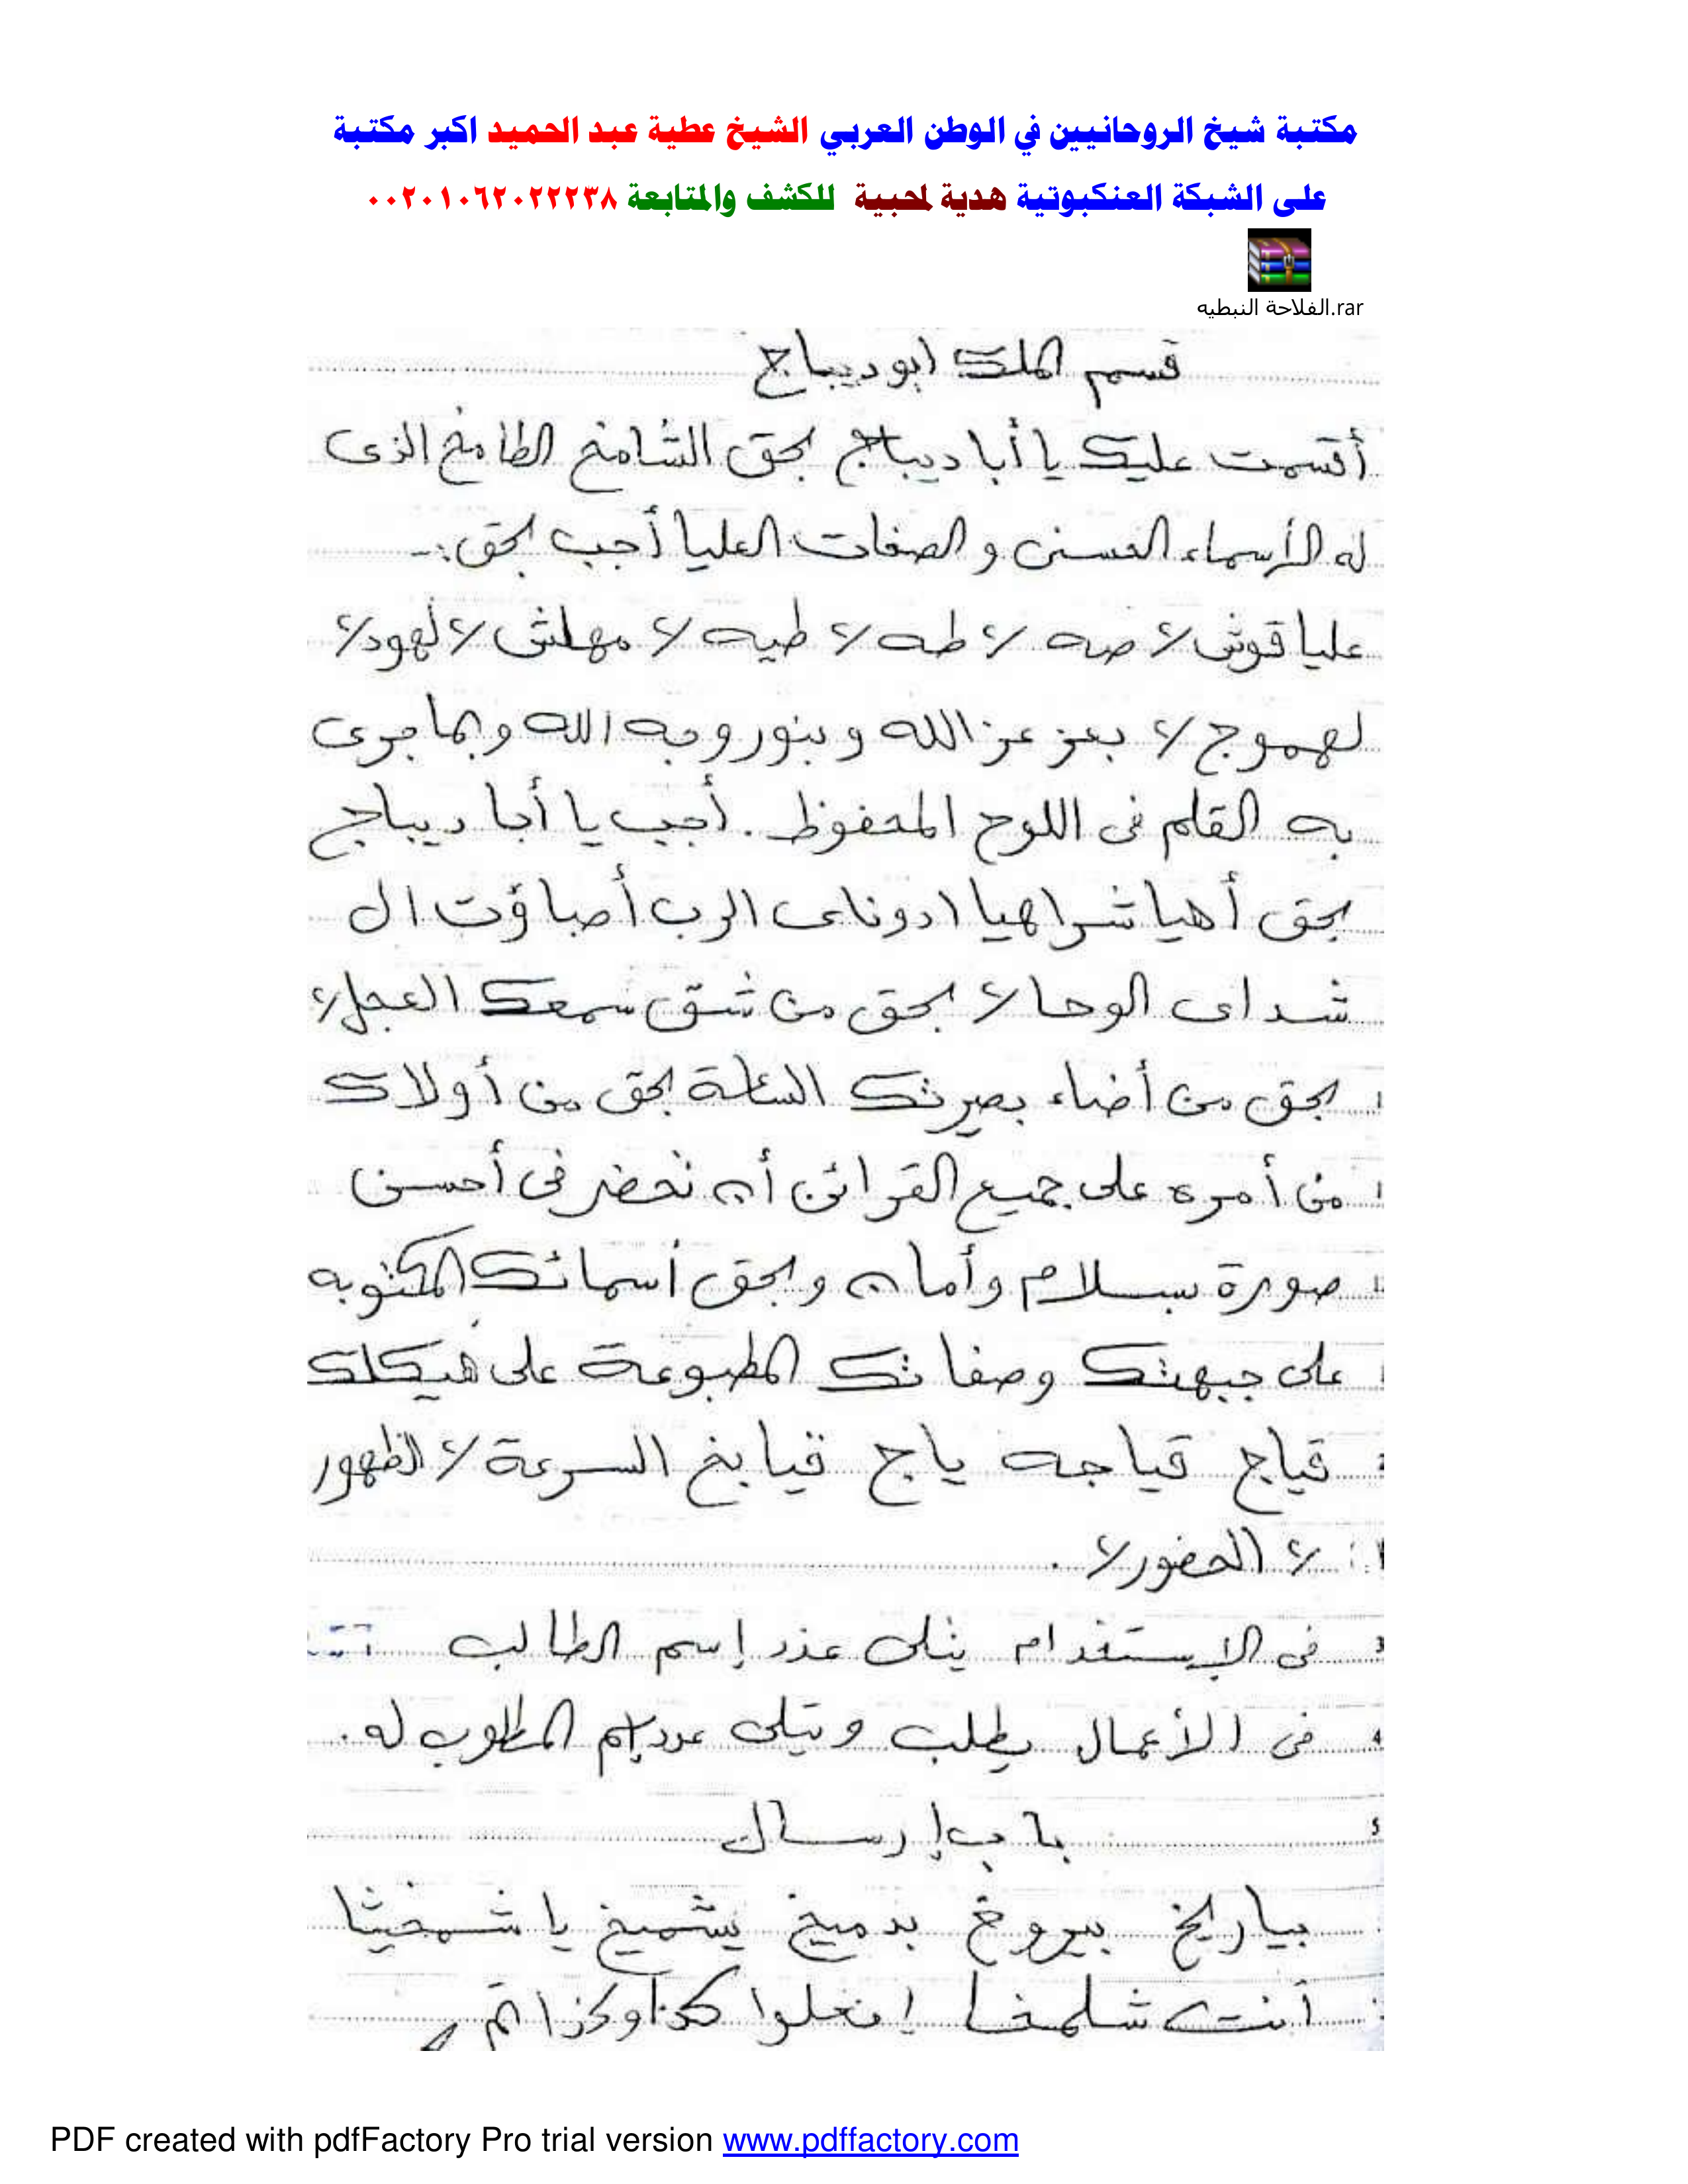 مكتبة شيخ الروحانيين في الوطن العربي الشيخ عطية عبد الحميد اكبر مكتبة
على الشبكة العنكبوتية هدية لمحبية للكشف والمتابعة ٠٠٢٠١٠٦٢٠٢٢٢٣٨
الفلاحة النبطيه.rar
قسم الملك ابو ديباج
أقسمت عليك يا أبا ديباج بحق الشامخ الطامخ الذى
له الأسماء الحسنى و الصفات العليا أجب بحق:-
علياقوش ٢/ صه ٢/ طه ٢/ طيه ٢/ مهلش ٢/ لهود ٢/
لهموج ٢/ بعز عز الله و بنور وجه الله و بما جرى
به القلم فى اللوح المحفوظ. أجب يا أبا ديباج
بحق أهيا شراهيا ادوناى الرب أصباؤت ال
شداى الوحا ٢/ بحق من شق سمعك العجل ٢/
بحق من أضاء بصرتك الساعة بحق من أولاك
من أمره على جميع القرائن أن تحضر فى أحسن
صورة بسلام وأمان و بحق أسمائك المكتوبه
على جبهتك وصفاتك المطبوعة على هيكلك
قياج قياجه ياج قيابخ السرعة ٢/ الظهور
٢/ الحضور ٢/.
فى الإستخدام يتلى عدد إسم الطالب
فى الأعمال يطلب ويتلى عدد إسم المطلوب له.
باب إرسال
بياريخ بيروخ بدميخ يشميخ يا شمخيثا
أنت شلمخا إفعلوا كذا وكذا تم
PDF created with pdfFactory Pro trial version www.pdffactory.com